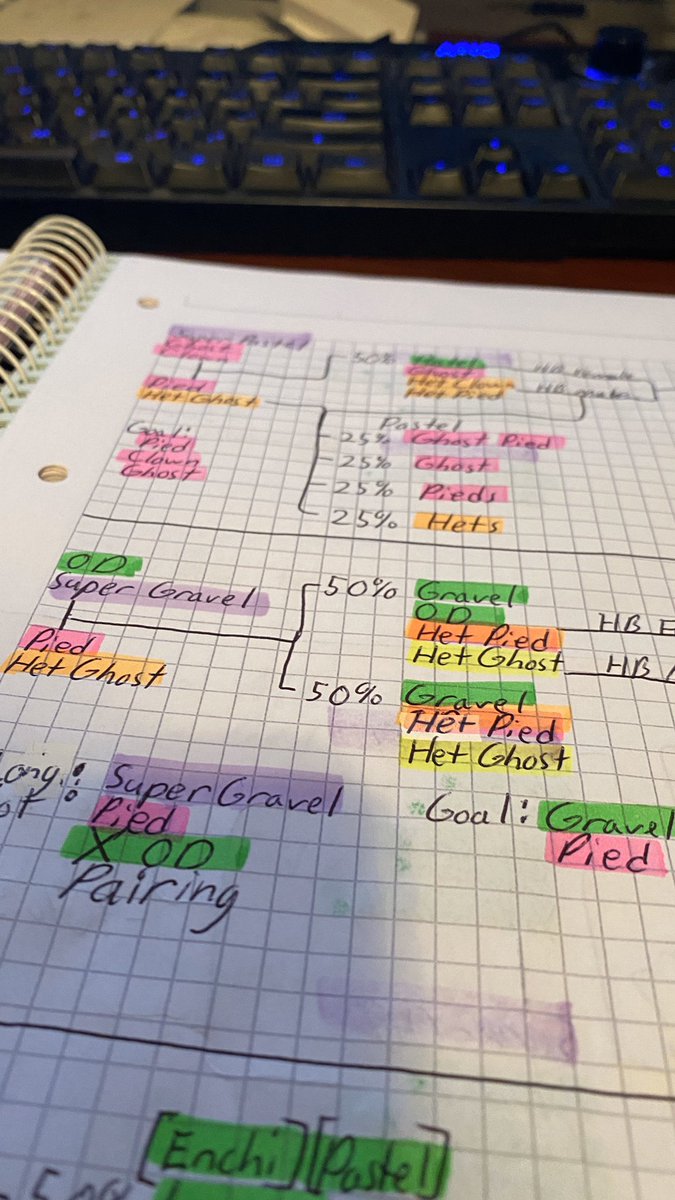 Super Pastel
Clown
Pied
Het Ghost
Goal:
Pied
Clown
Ghost
50% Pastel
Ghost
Het Clown
Het Pied
HB Female
HB
Pastel
25% Ghost Pied
25% Ghost
25% Pieds
25% Hets
OD
Super Gravel
Pied
Het Ghost
50% Gravel
OD
Het Pied
Het Ghost
HB
HB
50% Gravel
Het Pied
Het Ghost
Super Gravel
Pied
X OD
Pairing
Goal: Gravel
Pied
[Enchi][Pastel]